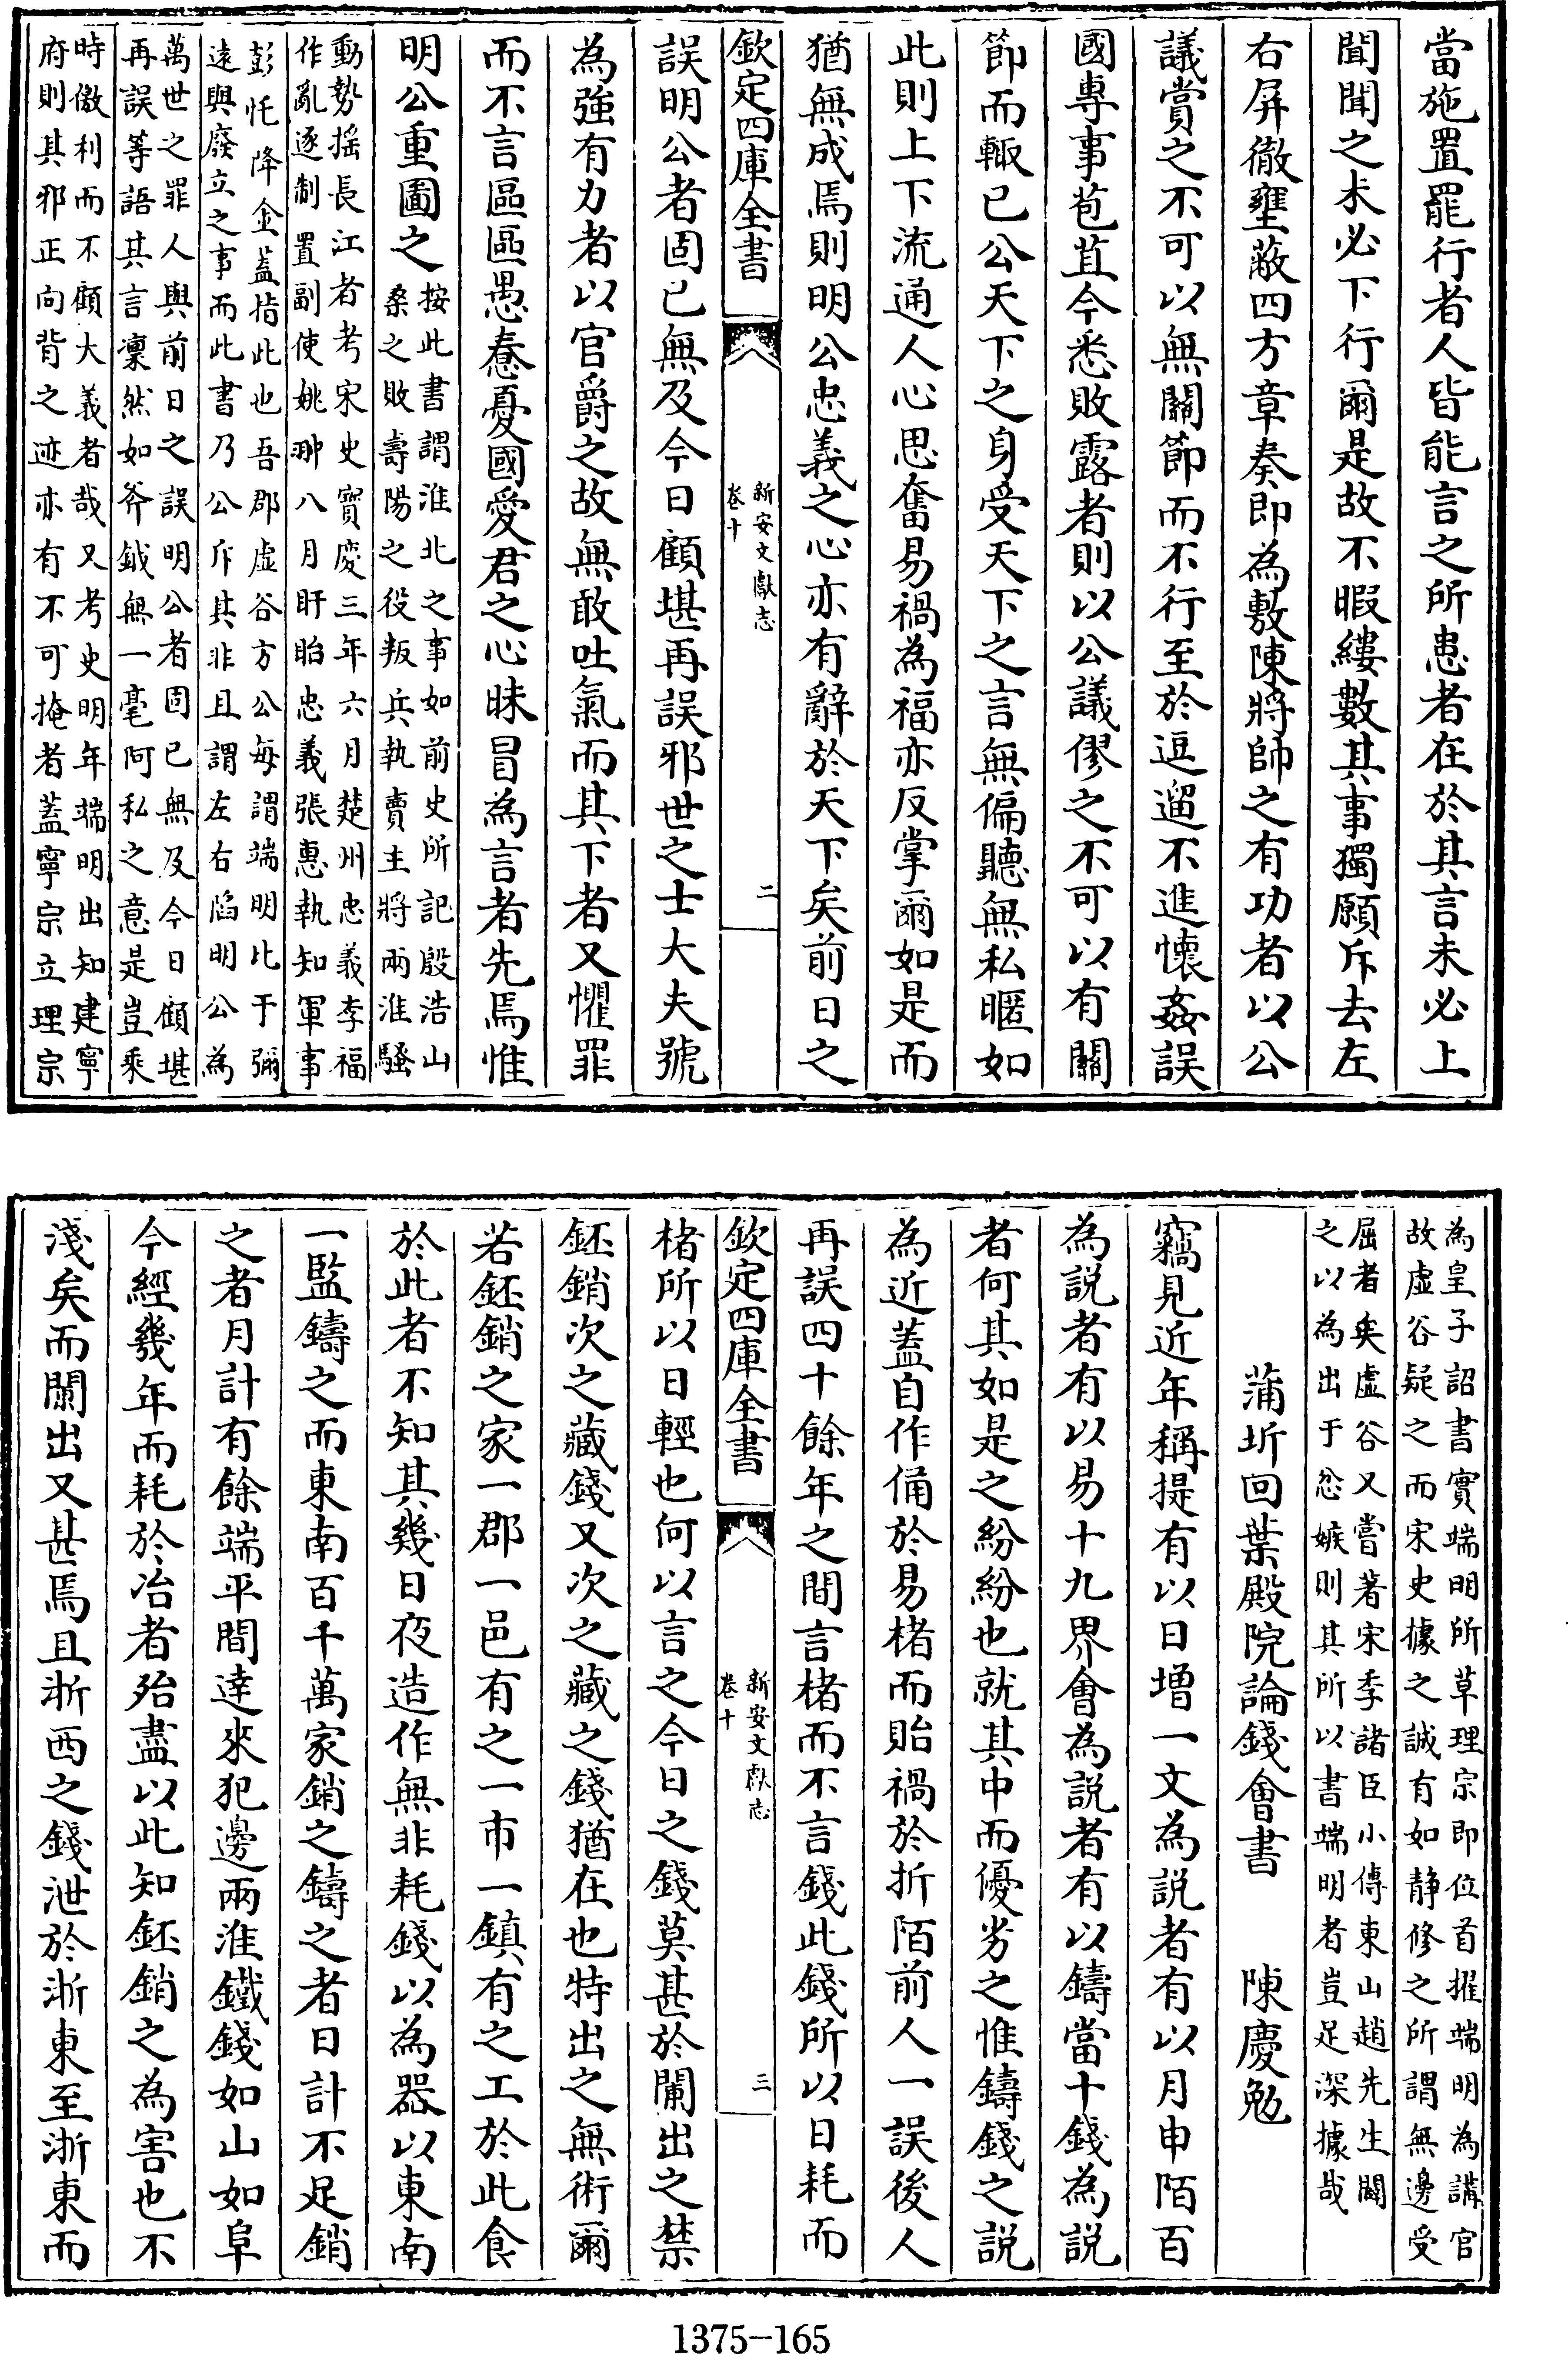 當施置罷行者人皆能言之所患者在於其言未必上
聞聞之未必下行爾是故不暇縷數其事獨願斥去左
右屏徹壅蔽四方章奏即為敷陳將帥之有功者以公
議賞之不可以無關節而不行至於逗遛不進懷姦誤
國專事苞苴今悉敗露者則以公議僇之不可以有關
節而輙已公天下之身受天下之言無偏聽無私暱如
此則上下流通人心思奮易禍為福亦反掌爾如是而
猶無成焉則明公忠義之心亦有辭於天下矣前日之
欽定四庫全書
新安文獻志
卷十
二
誤明公者固已無及今日顧堪再誤邪世之士大夫號
為強有力者以官爵之故無敢吐氣而其下者又懼罪
而不言區區愚惷憂國愛君之心昧冒為言者先焉惟
明公重圖之
按此書謂淮北之事如前史所記殷浩山
桑之敗壽陽之役叛兵執賣主將兩淮騷
動勢揺長江者考宋史寳慶三年六月楚州忠義李福
作亂逐制置副使姚翀八月盱眙忠義張惠執知軍事
彭忔降金蓋指此也吾郡虛谷方公每謂端明比于彌
遠與廢立之事而此書乃公斥其非且謂左右䧟明公為
萬世之罪人與前日之誤明公者固已無及今日顧堪
再誤等語其言凜然如斧鉞無一毫阿私之意是豈乘
時儌利而不顧大義者哉又考史明年端明出知建寧
府則其邪正向背之迹亦有不可掩者蓋寧宗立理宗
為皇子詔書實端明所草理宗即位首擢端明為講官
故虛谷疑之而宋史據之誠有如静修之所謂無邊受
屈者矣虛谷又嘗著宋季諸臣小傳東山趙先生闢
之以為出于忿嫉則其所以書端明者豈足深據哉
蒲圻回葉殿院論錢會書 陳慶勉
竊見近年稱提有以日增一文為説者有以月申陌百
為説者有以易十九界會為説者有以鑄當十錢為説
者何其如是之紛紛也就其中而優劣之惟鑄錢之説
為近蓋自作俑於易楮而貽禍於折陌前人一誤後人
再誤四十餘年之間言楮而不言錢此錢所以日耗而
欽定四庫全書
新安文獻志
卷十
三
楮所以日輕也何以言之今日之錢莫甚於闌出之禁
鉟銷次之藏錢又次之藏之錢猶在也特出之無術爾
若鉟銷之家一郡一邑有之一市一鎮有之工於此食
於此者不知其幾日夜造作無非耗錢以為器以東南
一監鑄之而東南百千萬家銷之鑄之者日計不足銷
之者月計有餘端平間達來犯邊兩淮鐵錢如山如阜
今經幾年而耗於冶者殆盡以此知鉟銷之為害也不
淺矣而闌出又甚焉且浙西之錢泄於浙東至浙東而
1375-165